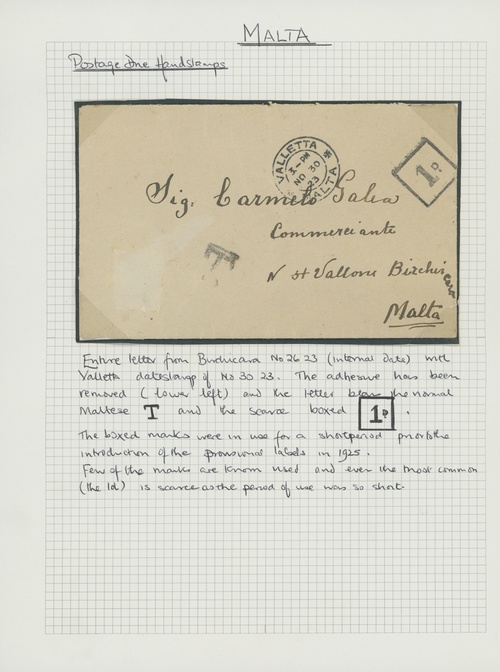 MALTA
Postage Due Handstamps
VALLETTA
3-PM
NO 30
23
MALTA
1D
Sig. Carmelo Galea
Commerciante
N St Vallone Birchircara
T
Malta
Entire letter from Birchircara No 26 23 (internal date) with
Valletta datestamp of No 30 23. The adhesive has been
removed (lower left) and the letter bears the normal
Maltese T and the scarce boxed 1D.
The boxed marks were in use for a short period prior to the
introduction of the provisional labels in 1925.
Few of the marks are known used and even the most common
(the 1d) is scarce as the period of use was so short.